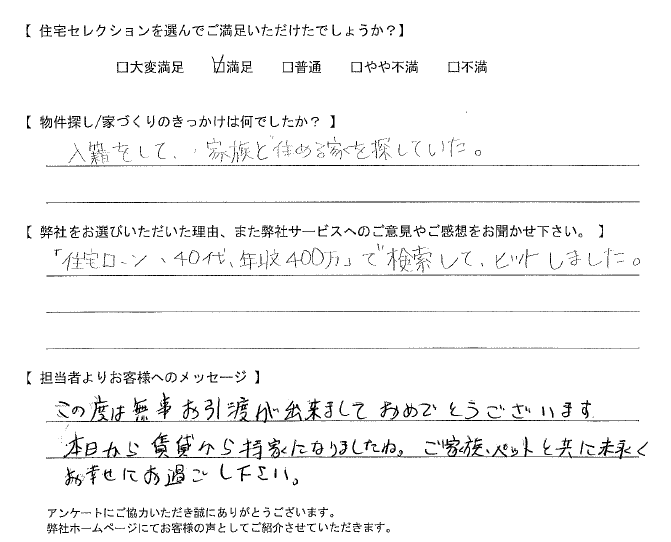 【 住宅セレクションを選んでご満足いただけたでしょうか？】
□大変満足 ☑満足 □普通 □やや不満 □不満
【 物件探し/家づくりのきっかけは何でしたか？ 】
入籍をして、家族と住める家を探していた。
【 弊社をお選びいただいた理由、また弊社サービスへのご意見やご感想をお聞かせ下さい。 】
「住宅ローン、40代、年収400万」で検索して、ヒットしました。
【 担当者よりお客様へのメッセージ 】
この度は無事お引渡が出来ましておめでとうございます
本日から賃貸から持家になりましたね。ご家族、ペットと共に末永く
お幸せにお過ごし下さい。
アンケートにご協力いただき誠にありがとうございます。
弊社ホームページにてお客様の声としてご紹介させていただきます。